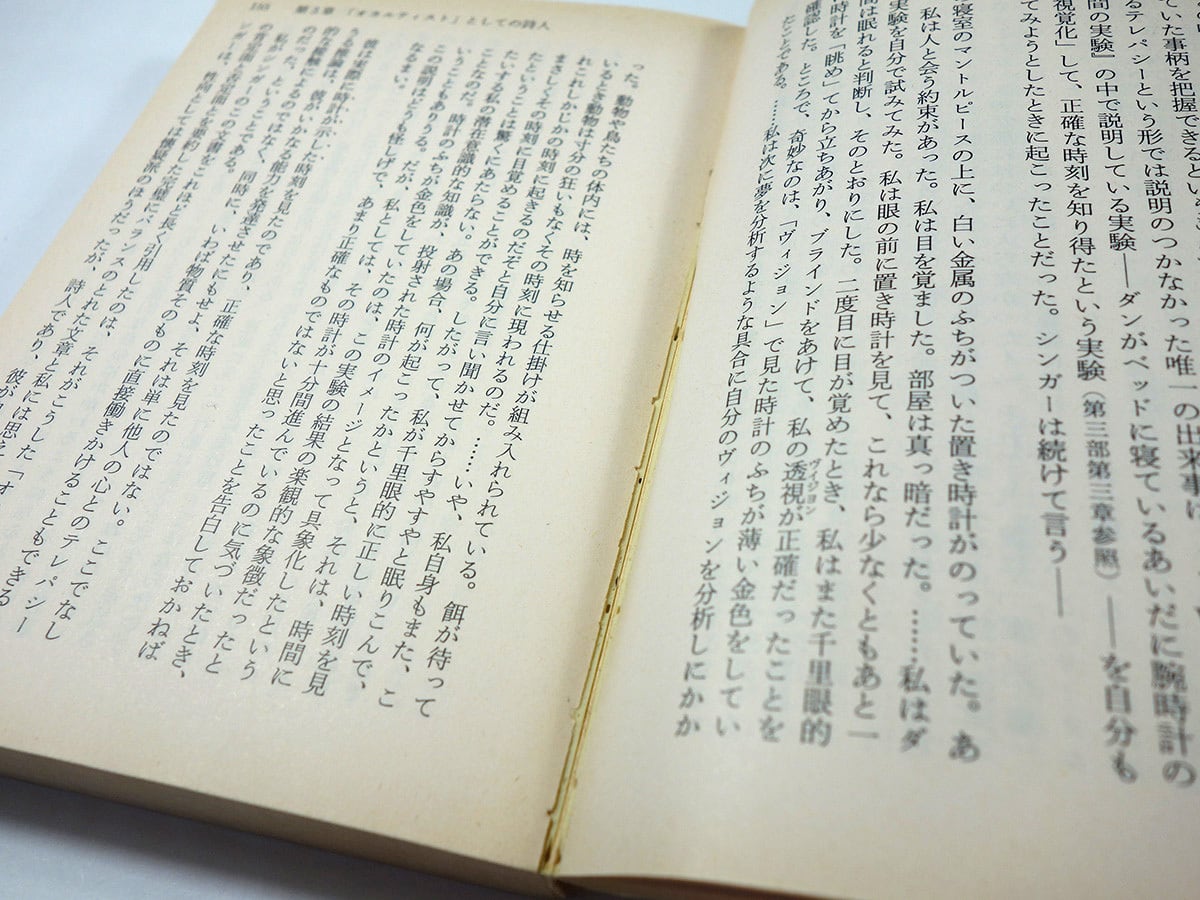 ていた事柄を把握できるとい
るテレパシーという形では説明のつかなかった唯一の出来事は
間の実験』の中で説明している実験――ダンがベッドに寝ているあいだに腕時計の
視覚化」して、正確な時刻を知り得たという実験（第三部第三章参照）――を自分も
てみようとしたときに起こったことだった。シンガーは続けて言う――
寝室のマントルピースの上に、白い金属のふちがついた置き時計がのっていた。あ
私は人と会う約束があった。私は目を覚ました。部屋は真っ暗だった。……私はダ
実験を自分で試みてみた。私は眼の前に置き時計を見て、これなら少なくともあと一
間は眠れると判断し、そのとおりにした。二度目に目が覚めたとき、私はまた千里眼的
時計を「眺め」てから立ちあがり、ブラインドをあけて、私の透視ヴィジョンが正確だったことを
確認した。ところで、奇妙なのは、「ヴィジョン」で見た時計のふちが薄い金色をしてい
たことである。……私は次に夢を分析するような具合に自分のヴィジョンを分析しにかか
第3章 「オカルティスト」としての詩人
った。動物や鳥たちの体内には、時を知らせる仕掛けが組み入れられている。餌が待って
いるとき動物は寸分の狂いもなくその時刻に現われるのだ。……いや、私自身もまた、こ
れこれしかじかの時刻に起きるのだぞと自分に言い聞かせてからすやすやと眠りこんで、
まさしくその時刻に目覚めることができる。したがって、私が千里眼的に正しい時刻を見
たということは驚くにあたらない。あの場合、何が起こったかというと、それは、時間に
たいする私の潜在意識的な知識が、投射された時計のイメージとなって具象化したという
ことなのだ。時計のふちが金色をしていたのは、この実験の結果の楽観的な象徴だったと
いうこともありうる。だが、私としては、その時計が十分間進んでいるのに気づいたとき、
この説明はどうも怪しげで、あまり正確なものではないと思ったことを告白しておかねば
なるまい。
彼は実際に時計が示した時刻を見たのであり、正確な時刻を見たのではない。ここでなし
うる推論は、彼がいかなる能力を発達させたにもせよ、それは単に他人の心とのテレパシー
的な接触によるのではなく、同時に、いわば物質そのものに直接働きかけることもできる
のだった、ということである。
私がシンガーのこの文書をこれほど長く引用したのは、それがこうした「オ
の肯定面と否定面とを要約した完璧にバランスのとれた文章と私には思え
ンガーは、性向としては懐疑派のほうだったが、詩人であり、彼が